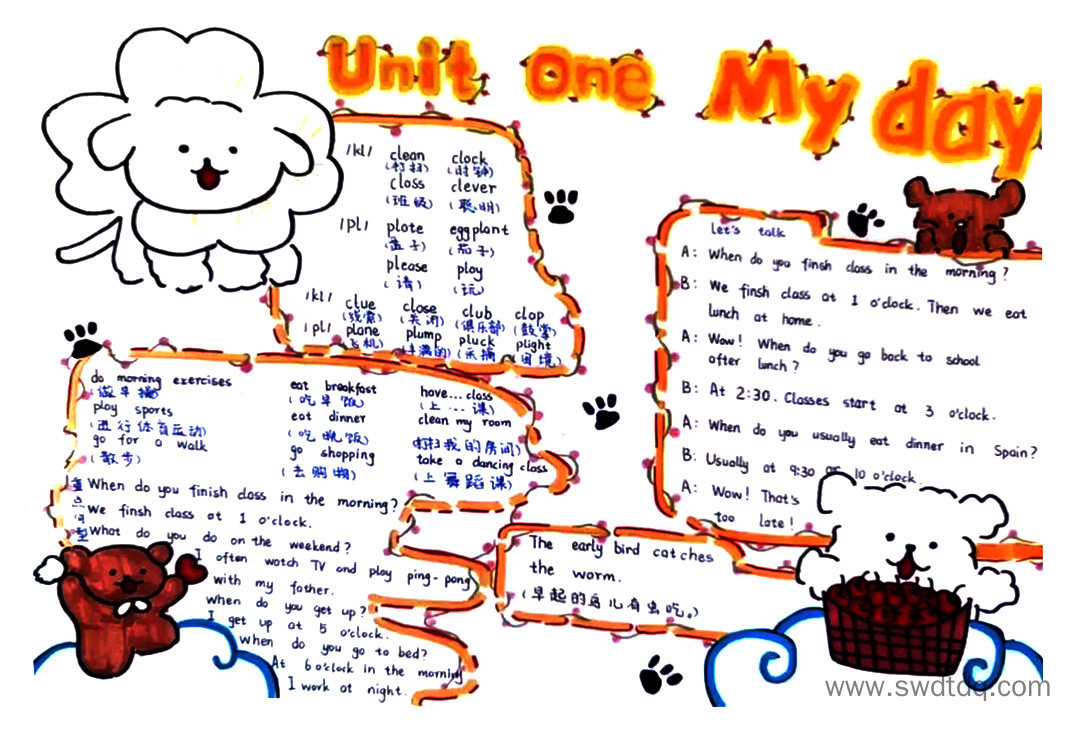 Unit one My day
/kl/ clean clock
(打扫) (时钟)
closs clever
(班级) (聪明)
/pl/ plote eggplant
(盘子) (茄子)
please ploy
(请) (玩)
/kl/ clue close club clop
(线索) (关闭) (俱乐部) (鼓掌)
/pl/ plane plump pluck plight
飞机) 丰满的) (采摘) (困境)
let's talk
A: When do you finsh closs in the morning?
B: We finsh closs at 1 o'clock. Then we eat
lunch at home.
A: Wow! When do you go back to school
after lunch?
B: At 2:30. Classes start at 3 o'clock.
A: When do you usually eat dinner in Spain?
B: Usually at 9:30 or 10 o'clock.
A: Wow! That's
too late!
do morning exercises eat breakfast have...class
(做早操) (吃早饭) (上...课)
play sports eat dinner clean my room
(进行体育运动) (吃晚饭) (打扫我的房间)
go for a walk go shopping take a dancing class
(散步) (去购物) (上舞蹈课)
When do you finish closs in the morning?
We finsh closs at 1 o'clock.
What do you do on the weekend?
I often watch TV and play ping-pong
with my father.
when do you get up?
I get up at 5 o'clock.
when do you go to bed?
At 6 o'clock in the morning
I work at night.
The early bird catches
the worm.
(早起的鸟儿有虫吃。)
www.swdtdq.com